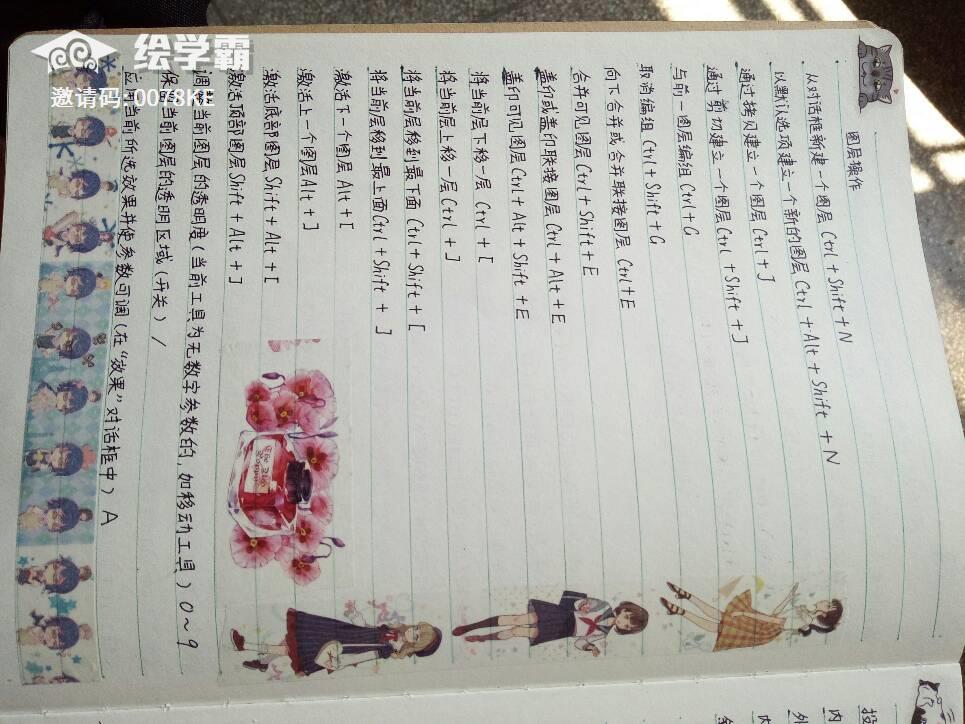 绘学霸
邀请码:00f8KE
图层操作
从对话框新建一个图层 Ctrl+Shift+N
以默认选项建立一个新的图层 Ctrl+Alt+Shift+N
通过拷贝建立一个图层 Ctrl+J
通过剪切建立一个图层 Ctrl+Shift+J
与前一图层编组 Ctrl+G
取消编组 Ctrl+Shift+G
向下合并或合并联接图层 Ctrl+E
合并可见图层 Ctrl+Shift+E
盖印或盖印联接图层 Ctrl+Alt+E
盖印可见图层 Ctrl+Alt+Shift+E
将当前层下移一层 Ctrl+[
将当前层上移一层 Ctrl+]
将当前层移到最下面 Ctrl+Shift+[
将当前层移到最上面 Ctrl+Shift+]
激活下一个图层 Alt+[
激活上一个图层 Alt+]
激活底部图层 Shift+Alt+[
激活顶部图层 Shift+Alt+]
调整当前图层的透明度(当前工具为无数字参数的,如移动工具)0~9
保留当前图层的透明区域(开关)/
应用当前所选效果并使参数可调(在"效果"对话框中)A
投
内
外
内